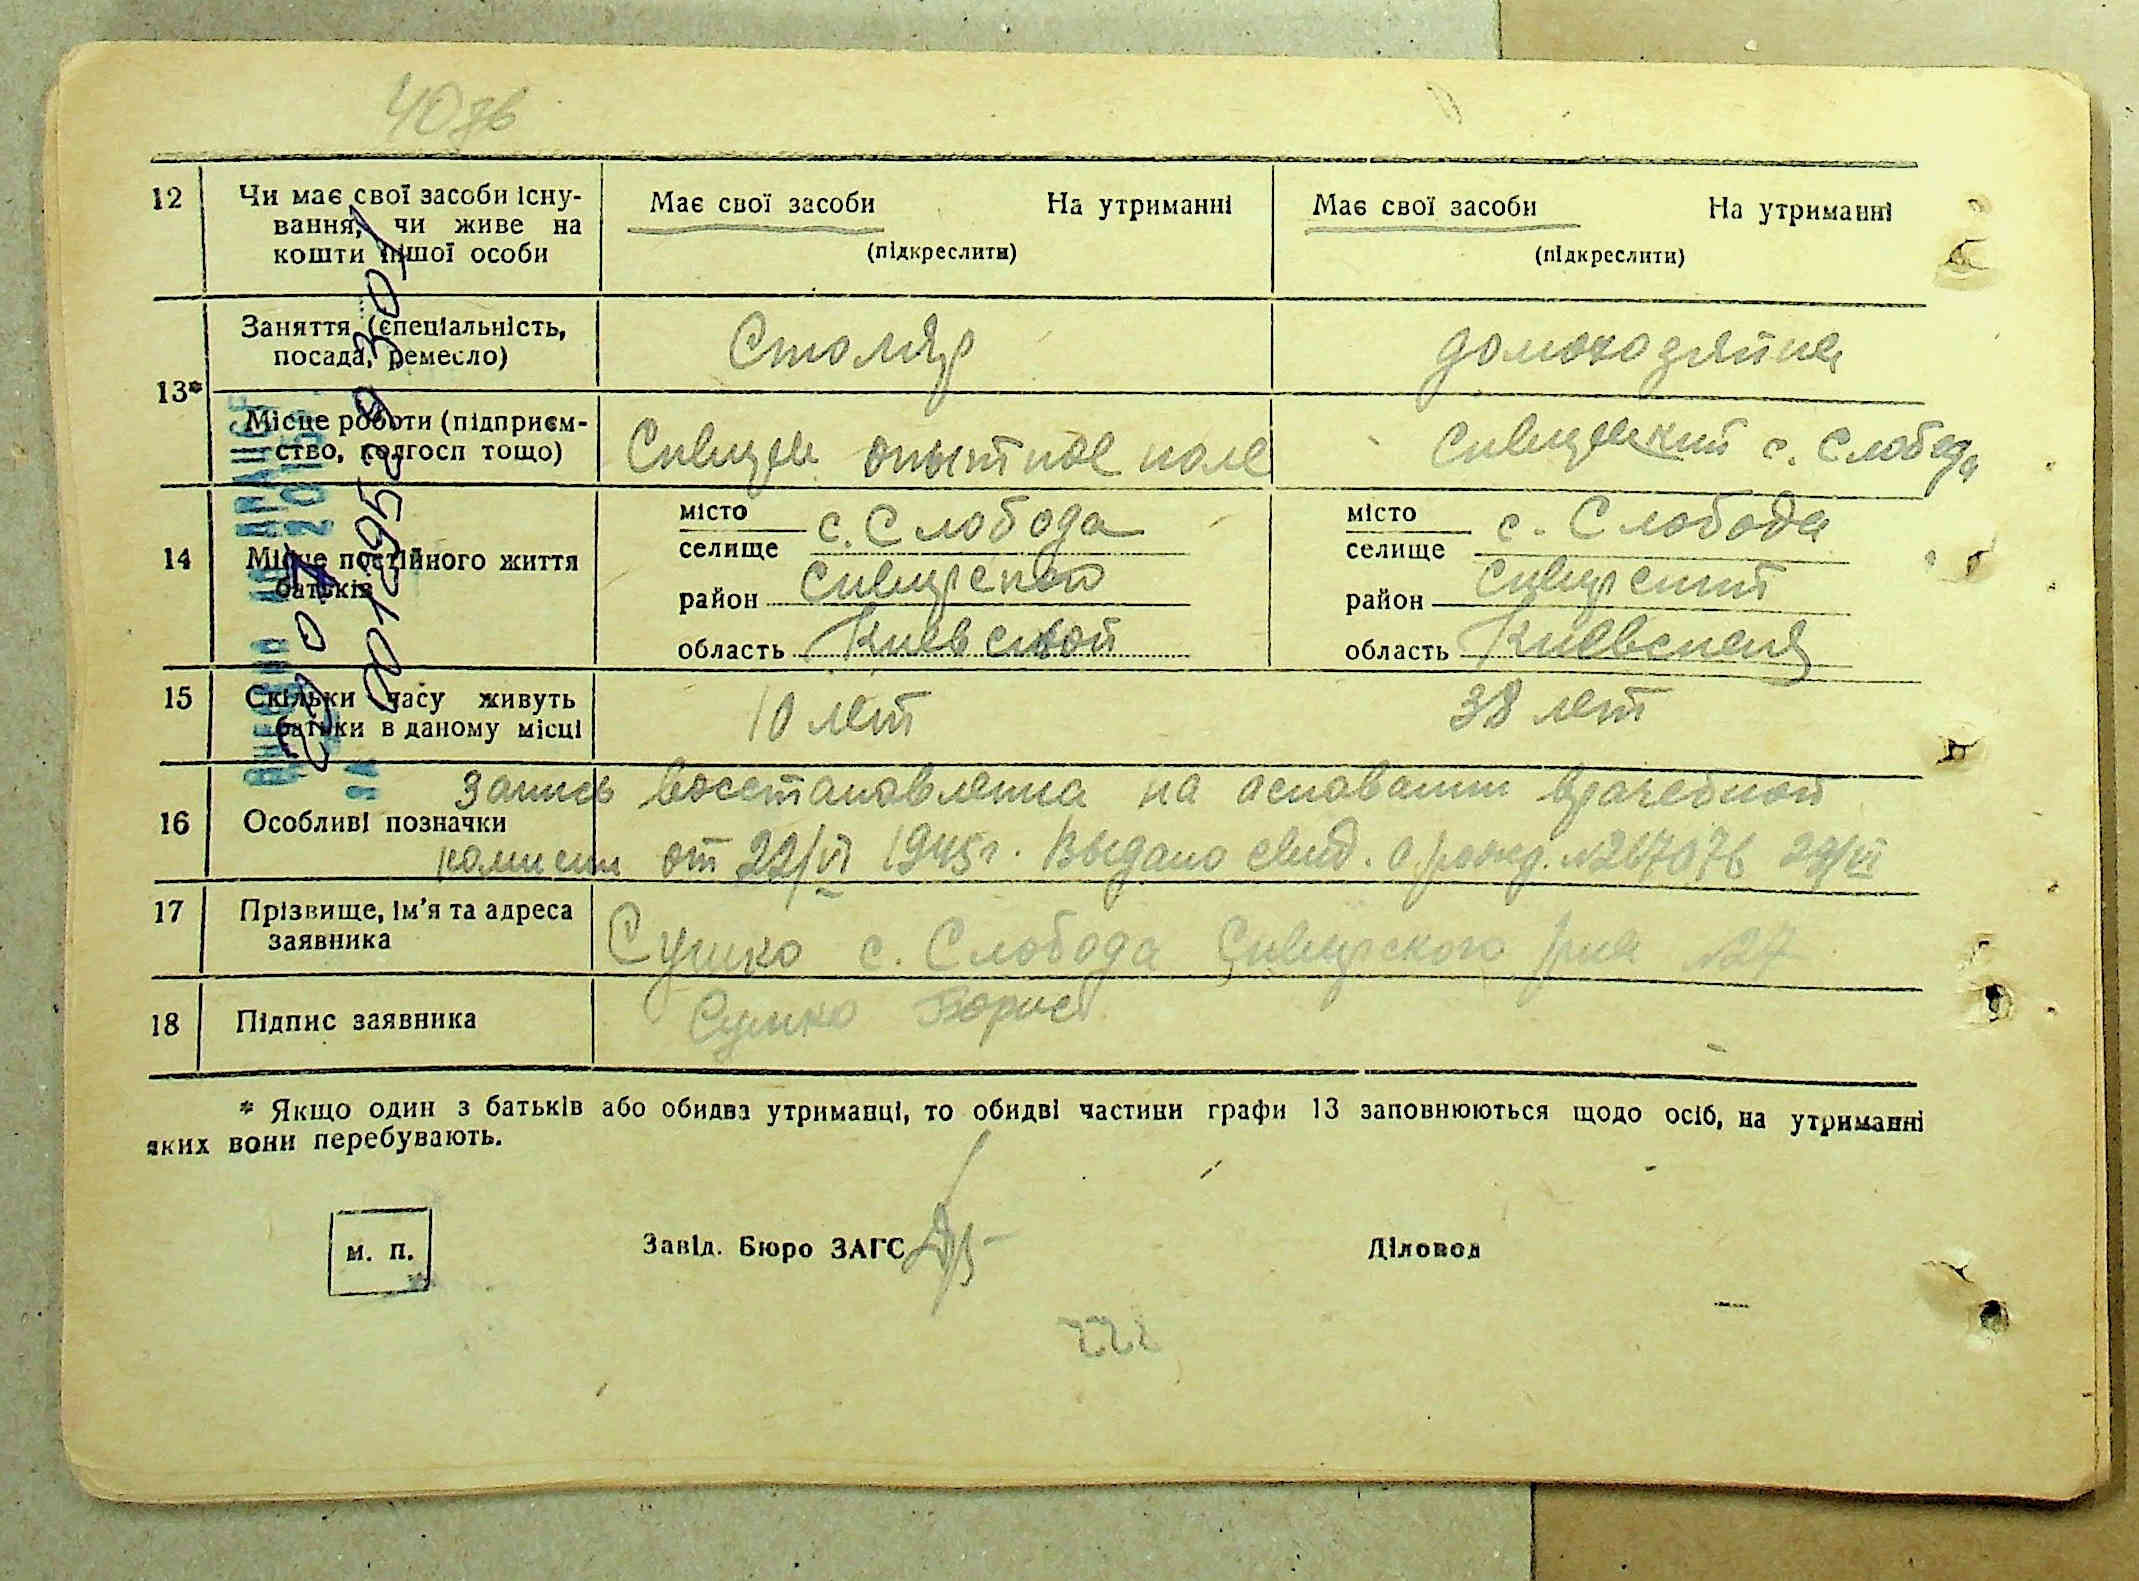 40 зв
12 Чи має свої засоби існу- Має свої засоби На утриманні Має свої засоби На утриманні
вання, чи живе на
кошти іншої особи (підкреслити) (підкреслити)
13* Заняття (спеціальність, Столяр домохозяйка
посада, ремесло)
Місце роботи (підприєм- опытное поле с. Слобода
ство, колгосп тощо)
14 Місце постійного життя місто с. Слобода місто с. Слобода
батьків селище селище
район район
область Киевской область Киевская
15 Скільки часу живуть 10 лет 38 лет
батьки в даному місці
Запись восстановленна на основании врачебной
16 Особливі позначки
комисии от 22/VI 1945г. Выдано свид. о рожд. №217076 29/VI
17 Прізвище, ім'я та адреса Сушко с. Слобода р-на №27
заявника
18 Підпис заявника Сушко Борис
* Якщо один з батьків або обидва утриманці, то обидві частини графи 13 заповнюються щодо осіб, на утриманні
яких вони перебувають.
М. П. Завід. Бюро ЗАГС Діловод
ВНЕСЕНО ДО ДРАЦСГ
201
ЗА